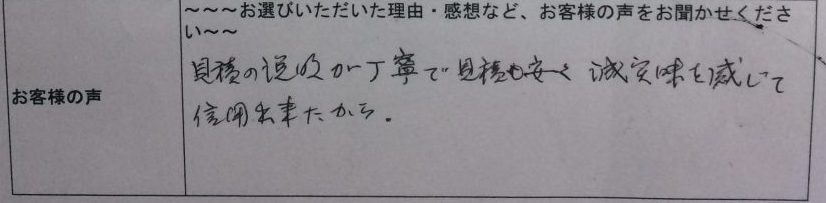 ~~~お選びいただいた理由・感想など、お客様の声をお聞かせくださ
い~~
お客様の声
見積の説明が丁寧で見積も安く 誠実味を感じて
信用出来たから.